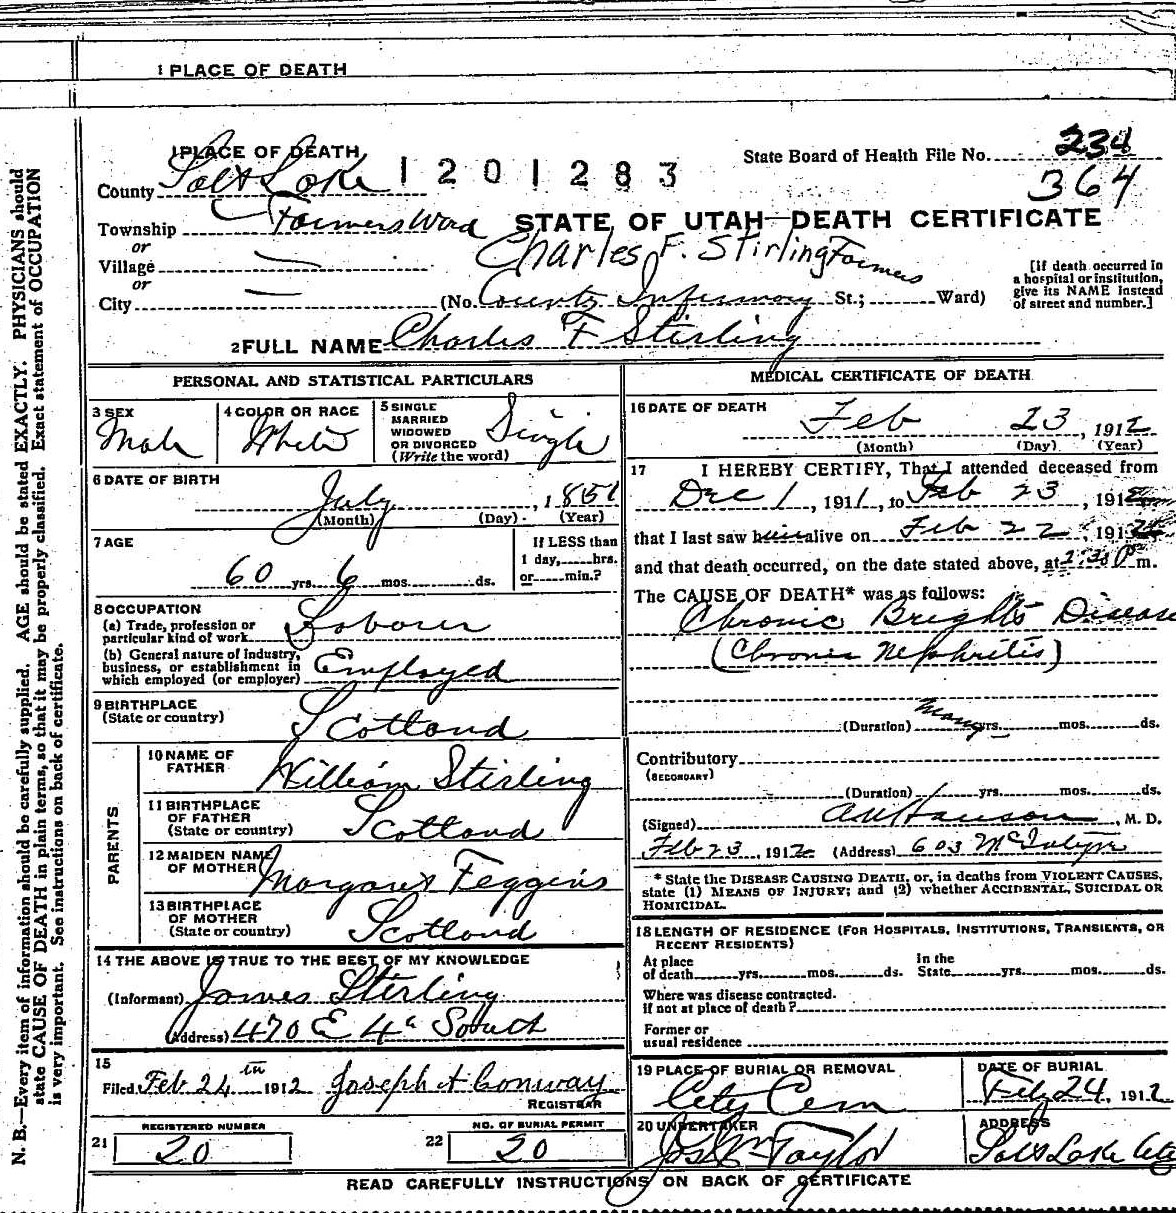 1 PLACE OF DEATH
1 PLACE OF DEATH
County Salt Lake
1201283
State Board of Health File No. 234
364
Township Farmers Ward
STATE OF UTAH—DEATH CERTIFICATE
or
Village
Charles F. Stirling Farmers
or
City
(No. County Infirmary St.; Ward)
[If death occurred in
a hospital or institution,
give its NAME instead
of street and number.]
2 FULL NAME Charles F Stirling
PERSONAL AND STATISTICAL PARTICULARS
3 SEX
Male
4 COLOR OR RACE
White
5 SINGLE
MARRIED
WIDOWED
OR DIVORCED
(Write the word)
Single
6 DATE OF BIRTH
July, 1851
(Month) (Day) (Year)
7 AGE
60 yrs. 6 mos. ds.
If LESS than
1 day, hrs.
or min.?
8 OCCUPATION
(a) Trade, profession or
particular kind of work
Laborer
(b) General nature of industry,
business, or establishment in
which employed (or employer)
Employed
9 BIRTHPLACE
(State or country)
Scotland
PARENTS
10 NAME OF
FATHER
William Stirling
11 BIRTHPLACE
OF FATHER
(State or country)
Scotland
12 MAIDEN NAME
OF MOTHER
Margaret Feggins
13 BIRTHPLACE
OF MOTHER
(State or country)
Scotland
14 THE ABOVE IS TRUE TO THE BEST OF MY KNOWLEDGE
(Informant) James Stirling
(Address) 470 E 4th South
15
Filed Feb 24th 1912 Joseph H Conway
REGISTRAR
REGISTERED NUMBER
21 20
NO. OF BURIAL PERMIT
22 20
MEDICAL CERTIFICATE OF DEATH
16 DATE OF DEATH
Feb 23, 1912
(Month) (Day) (Year)
17 I HEREBY CERTIFY, That I attended deceased from
Dec 1, 1911, to Feb 23, 1912
that I last saw him alive on Feb 22, 1912
and that death occurred, on the date stated above, at 2:30 P m.
The CAUSE OF DEATH* was as follows:
Chronic Brights Disease
(Chronic Nephritis)
(Duration) many yrs. mos. ds.
Contributory
(SECONDARY)
(Duration) yrs. mos. ds.
(Signed) Hanson, M. D.
Feb 23, 1912 (Address) 603 McIntyre
* State the DISEASE CAUSING DEATH, or, in deaths from VIOLENT CAUSES,
state (1) MEANS OF INJURY; and (2) whether ACCIDENTAL, SUICIDAL or
HOMICIDAL.
18 LENGTH OF RESIDENCE (FOR HOSPITALS, INSTITUTIONS, TRANSIENTS, OR
RECENT RESIDENTS)
At place
of death yrs. mos. ds.
In the
State yrs. mos. ds.
Where was disease contracted.
if not at place of death?
Former or
usual residence
19 PLACE OF BURIAL OR REMOVAL
City Cem
DATE OF BURIAL
Feb 24, 1912
20 UNDERTAKER
Jos Wm Taylor
ADDRESS
Salt Lake City
READ CAREFULLY INSTRUCTIONS ON BACK OF CERTIFICATE
N. B.—Every item of information should be carefully supplied. AGE should be stated EXACTLY. PHYSICIANS should
state CAUSE OF DEATH in plain terms, so that it may be properly classified. Exact statement of OCCUPATION
is very important. See instructions on back of certificate.